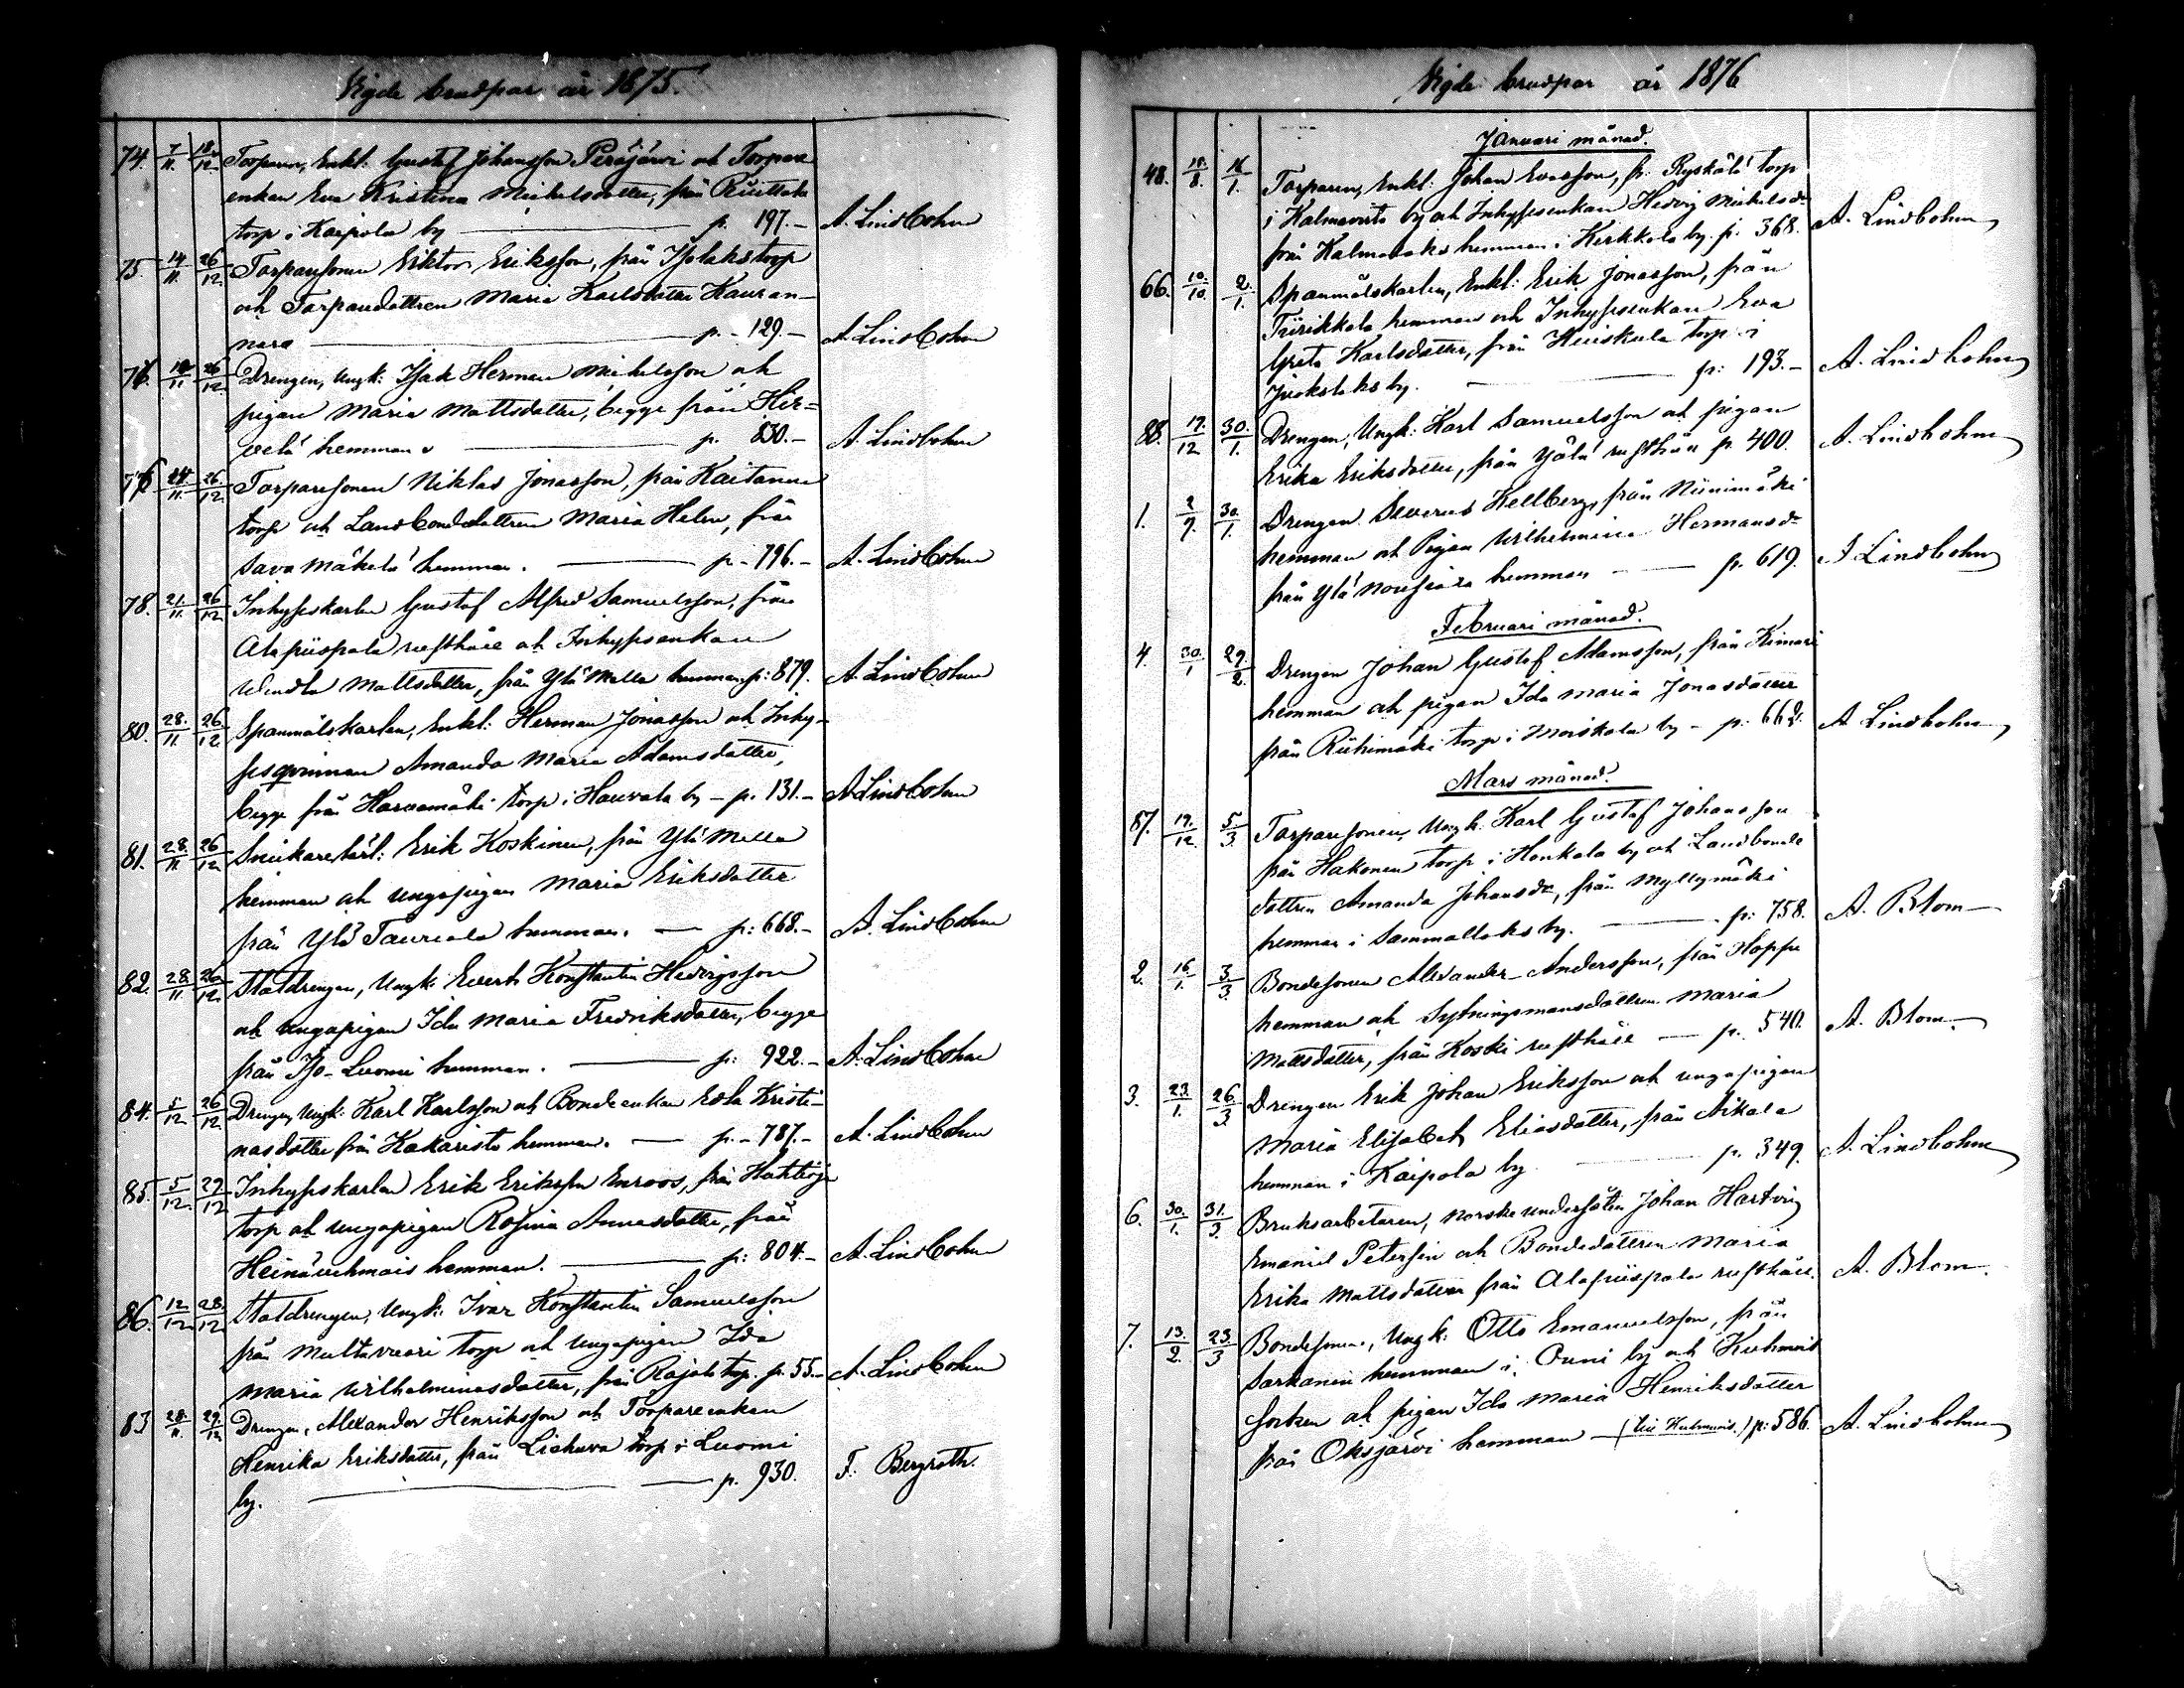 Vigde brudpar år 1875.
74. 7/11. 18/12. Torparen, Enkl: Gustaf Johansson Peräjärvi och Torpare
enkan Eva Kristina Mickelsdotter, från
torp i Kaipola by p. 197.- A. Lindbohm
75. 14/11. 26/12. Torparesonen Viktor Eriksson, från Isolaks torp
och Torparedottren Maria Karlsdotter Kauran-
nara p.- 129.- A. Lindbohm
76. 14/11 26/12. Drengen, Ungk: Isak Herman Mickelsson och
pigan Maria Mattsdotter, begge från Hir=
velä hemman p. 830.- A. Lindbohm
77. 24/11. 26/12. Torparesonen Niklas Jonasson, från Kaitanen
torp och Landbondedottren Maria Helen, från
Sava Mäkelä hemman. p.- 796.- A. Lindbohm
78. 21/11. 26/12 Inhyseskarlen Gustaf Alfred Samuelsson, från
Alapiispala rusthåll och Inhysesenkan
Wendla Mattsdotter, från Ylä Mella hemman p: 879. A. Lindbohm
80. 28./11. 26/12 Spanmålskarlen, Enkl: Herman Jonasson och Inhy-
sesqvinnan Amanda Maria Adamsdotter,
begge från Harvamäki torp i Hauvala by - p. 131.- A. Lindbohm
81. 28./11. 26/12 Snickarelärl: Erik Koskinen, från Ylä Mella
hemman och ungapigan Maria Eriksdotter
från Ylä Tauriala hemman. p: 668.- A. Lindbohm
82. 28./11. 26/12. Statdrengen, Ungk: Evert Konstantin Hedvigsson
och ungapigan Ida Maria Fredriksdotter, begge
från Iso-Luomi hemman. p: 922.- A. Lindbohm
84. 5/12 26/12. Drengen, Ungk: Karl Karlsson och Bondeenkan Edla Kristi-
nasdotter från Kakaristo hemman. p.- 787.- A. Lindbohm
85. 5/12. 29/12 Inhyseskarlen Erik Eriksson Enroos, från
torp och ungapigan Rosina Annasdotter, från
Heinäuhmais hemman. p: 804.- A. Lindbohm
86. 12/12 28/12 Statdrengen, Ungk: Ivar Konstantin Samuelsson
från Multavuori torp och ungapigan Ida
Maria Wilhelminasdotter, från Rajala torp. p. 55.- A. Lindbohm
83 28./11. 29/12 Drengen, Alexander Henriksson och Torpareenkan
Henrika Eriksdotter, från Liehuva torp i Luomi
by. p. 930. F. Bergroth.
Vigde brudpar år 1876
Januari månad.
48. 18./8. 16/1. Torparen, Enkl: Johan Evasson, fr. Ryskälä torp
i Kalmavirta by och Inhysesenkan Hedvig Mickelsdr
från Kalmalaks hemman i Kirkkola by. p. 368. A. Lindbohm
66. 10./10. 2./1. Spanmålskarlen, Enkl: Erik Jonasson, från
Tiirikkala hemman och Inhysesenkan Eva
Greta Karlsdotter, från Kuiskula torp i
Juokslaks by. p: 193.- A. Lindbohm
88. 17./12 30./1. Drengen, Ungk: Karl Samuelsson och pigan
Erika Eriksdotter, från Ylälä rusthåll p. 400. A. Lindbohm
1. 2/7. 30./1. Drengen Severus Hellberg, från Niinimäki
hemman och Pigan Wilhelmina Hermansdr
från Ylä Nousiala hemman p. 619. A Lindbohm
Februari månad.
4. 30./1 29./2. Drengen Johan Gustaf Adamsson, från Kimari
hemman och pigan Ida Maria Jonasdotter
från Riihimäki torp i Moiskala by - p. 662. A Lindbohm
Mars månad.
87. 19./12. 5/3. Torparesonen, Ungk: Karl Gustaf Johansson
från Hakonen torp i Honkala by och Landbonde
dottren Amanda Johansdr, från Myllymäki
hemman i Sammallaks by. p: 758. A. Blom
2. 16/1. 3/3. Bondesonen Alexander Andersson, från Hoppu
hemman och Sytningsmansdottren Maria
Mattsdotter, från Koski rusthåll p. 540. A. Blom.
3. 23./1. 26./3. Drengen Erik Johan Eriksson och ungapigan
Maria Elisabeth Eliasdotter, från Aikala
hemman i Kaipola by p. 349. A. Lindbohm
6. 30./1. 31./3. Bruksarbetaren, norske undersåten Johan Hartvig
Emaniel Petersen och Bondedottren Maria
Erika Mattsdotter från Alapiispala rusthåll. A. Blom.
7. 13./2. 23./3 Bondesonen, Ungk: Otto Emanuelsson, från
Sarkanen hemman i Onni by och Kuhmois
Socken och pigan Ida Maria Henriksdotter
från Oksjärvi hemman - (till Kuhmois.) p: 586. A. Lindbohm